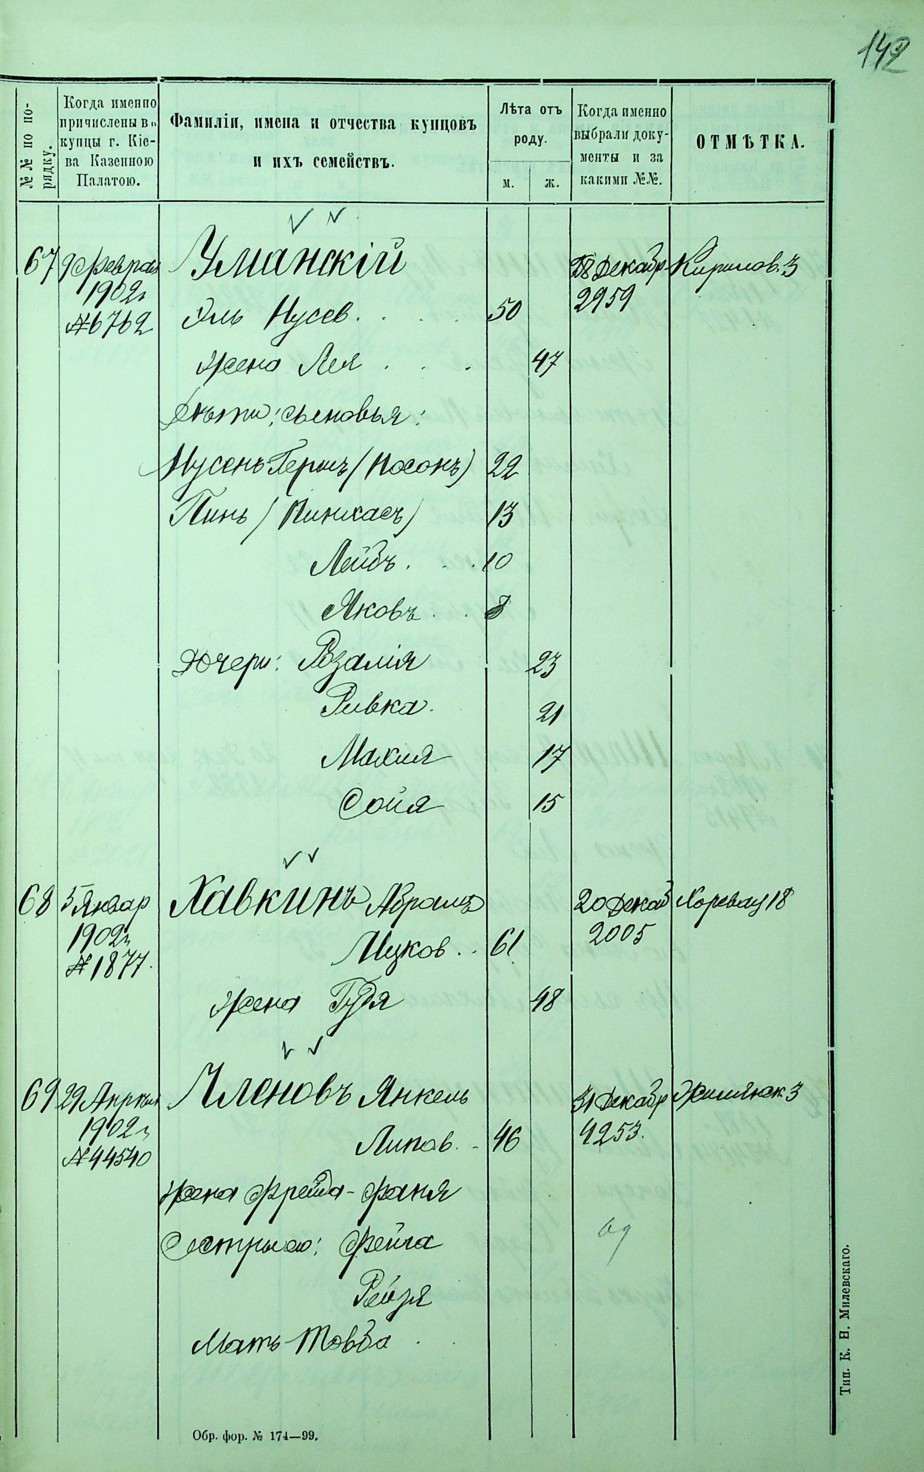 142
№№ по порядку.
Когда именно
причислены въ
купцы г. Кіе-
ва Казенною
Палатою.
Фамиліи, имена и отчества купцовъ
и ихъ семействъ.
Лѣта отъ
роду.
м. ж.
Когда именно
выбрали доку-
менты и за
какими №№.
ОТМѢТКА.
67 9 Феврал Уманскій Декабр Кирилов. 3
1902 г. 2959
№ 6762 Эль Нусев. 50
жена Лея 47
Дѣти: сыновья:
Нусень Гершъ (Носонъ) 22
Пинь (Пинхасъ) 13
Лейбъ. 10
Яковъ 8
Дочери: Розалія 23
Ривка. 21
Махля 17
Сойя 15
68 5 Январ Хавкинъ Абрамъ 20 Декаб Хоревая 18
1902 г. Ицков. 61 2005
№ 1877.
жена Гудя 48
69 29 Апрѣля Членовъ Янкель 31 Декабр Жилянск. 3
1902 г. Липов. 46 4253.
№ 44540
жена Фрейда-Фаня
Сестры его: Фейга
69
Рейзя
Мать Товба
Обр. фор. № 174—99.
Тип. К. Н. Милевскаго.